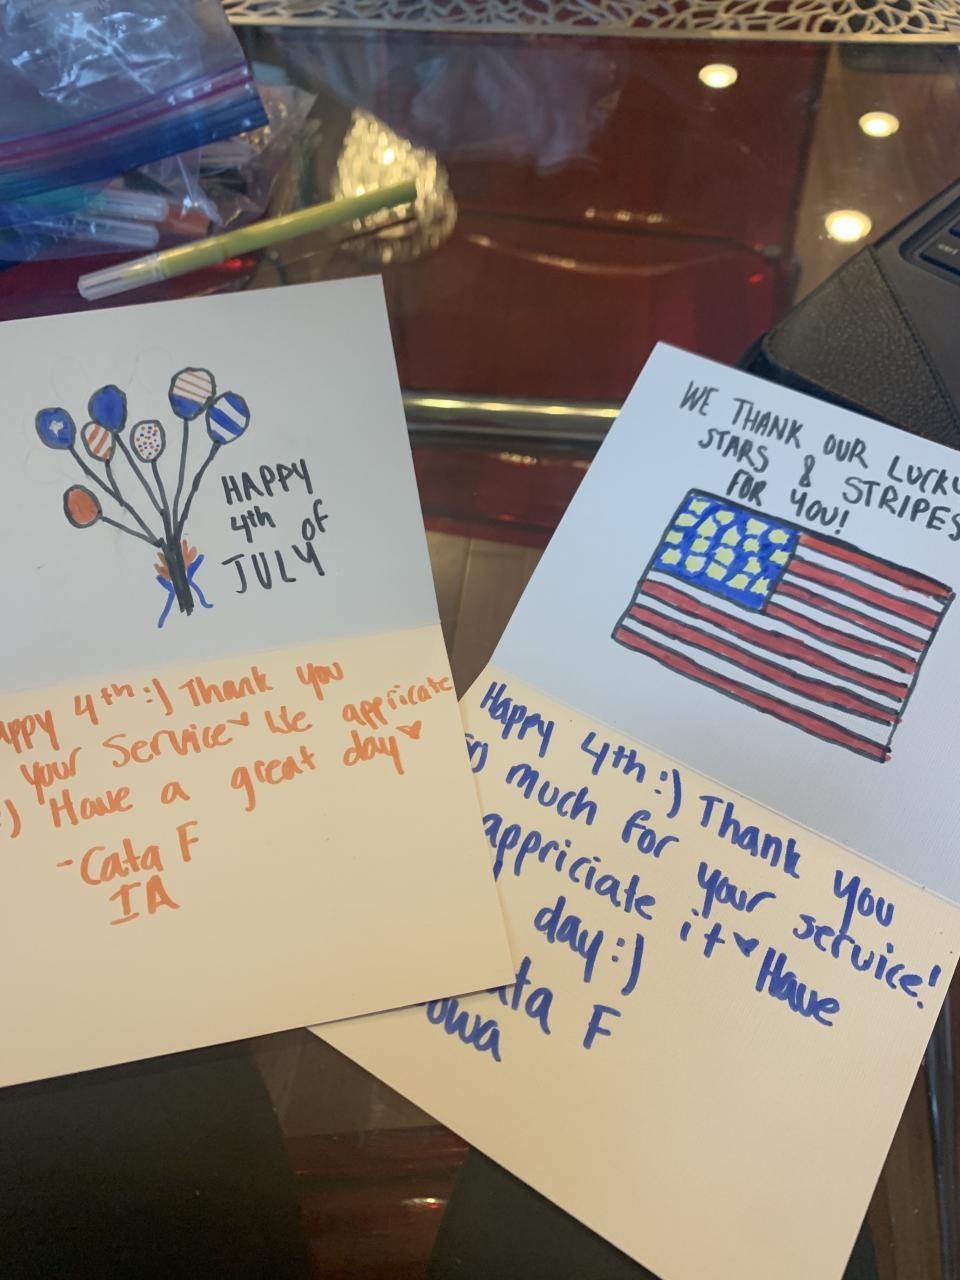 HAPPY
4th of
JULY
appy 4th :) Thank you
your service ♥ We appricate
:) Have a great day ♥
-Cata F
IA
WE THANK OUR LUCKY
STARS & STRIPES
FOR YOU!
Happy 4th :) Thank you
much for your service!
appriciate it ♥ Have
day :)
ata F
owa